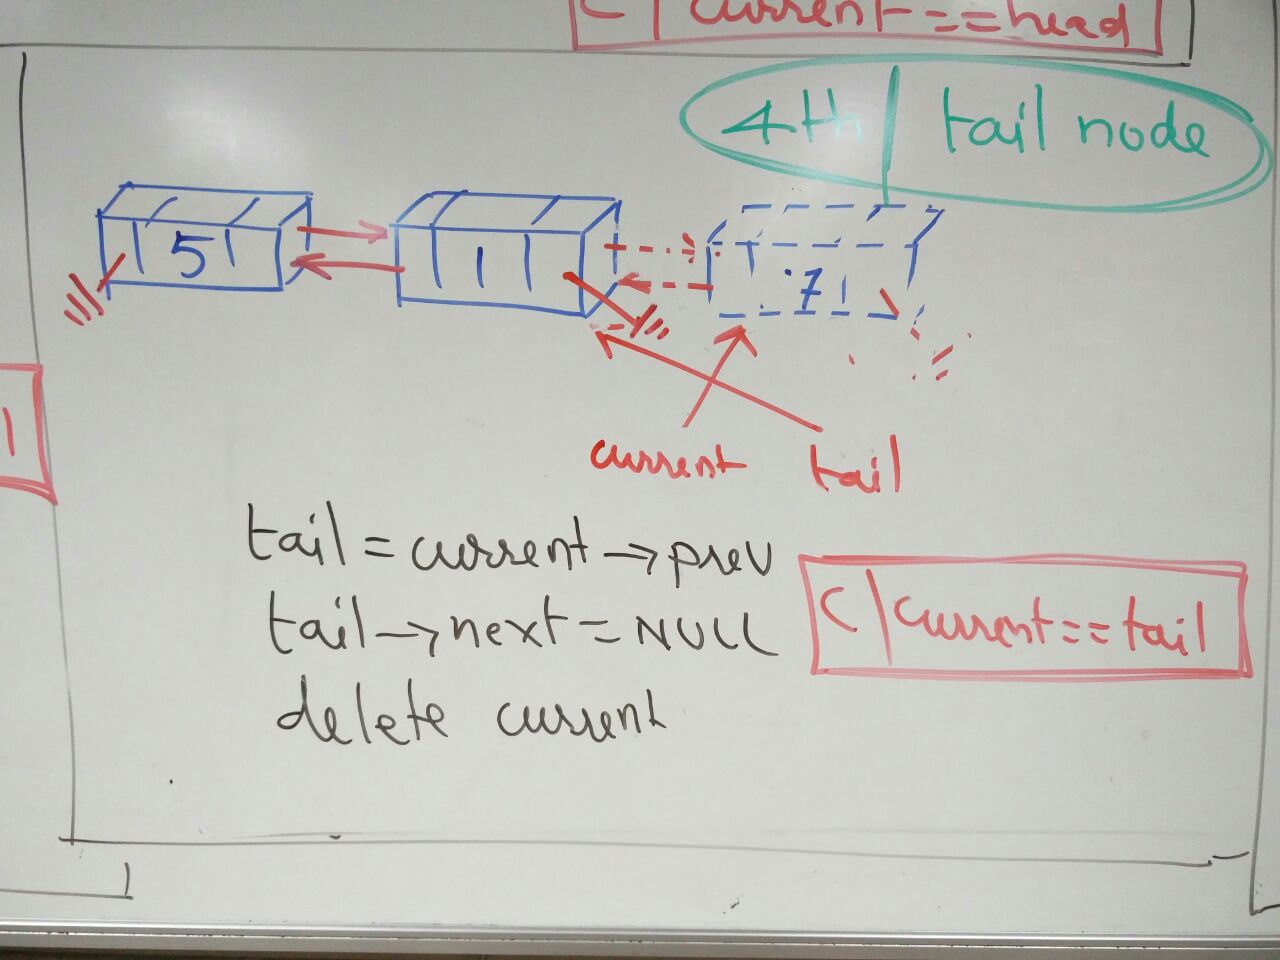 C | current == head
4th | tail node
5
1
7
current tail
1
tail = current → prev
tail → next = NULL
delete current
C | current == tail